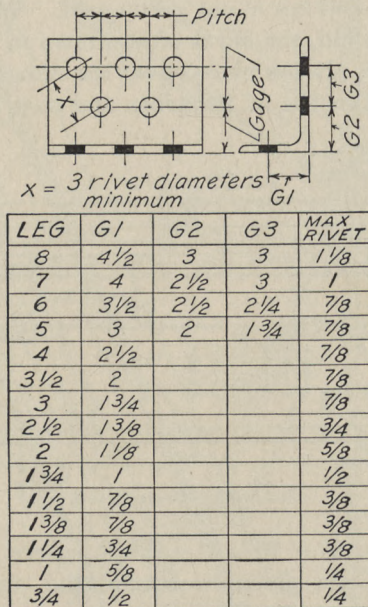 Pitch
X
Gage
G3
G2
G1
X = 3 rivet diameters
minimum
LEG G1 G2 G3 MAX RIVET
8 4 1/2 3 3 1 1/8
7 4 2 1/2 3 1
6 3 1/2 2 1/2 2 1/4 7/8
5 3 2 1 3/4 7/8
4 2 1/2 7/8
3 1/2 2 7/8
3 1 3/4 7/8
2 1/2 1 3/8 3/4
2 1 1/8 5/8
1 3/4 1 1/2
1 1/2 7/8 3/8
1 3/8 7/8 3/8
1 1/4 3/4 3/8
1 5/8 1/4
3/4 1/2 1/4